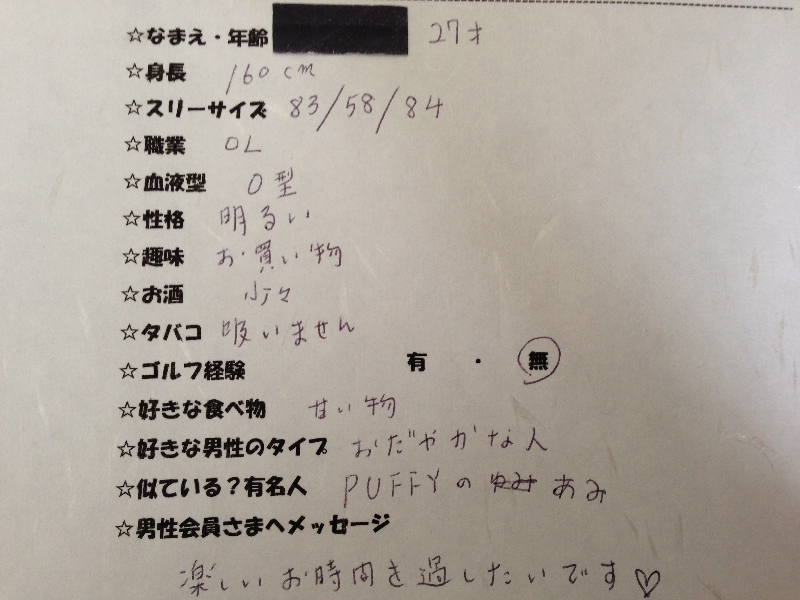 ☆なまえ・年齢 27才
☆身長 160cm
☆スリーサイズ 83/58/84
☆職業 OL
☆血液型 O型
☆性格 明るい
☆趣味 お買い物
☆お酒 少々
☆タバコ 吸いません
☆ゴルフ経験 有・無
☆好きな食べ物 甘い物
☆好きな男性のタイプ おだやかな人
☆似ている?有名人 PUFFYの あみ
☆男性会員さまへメッセージ
楽しいお時間を過したいです♡